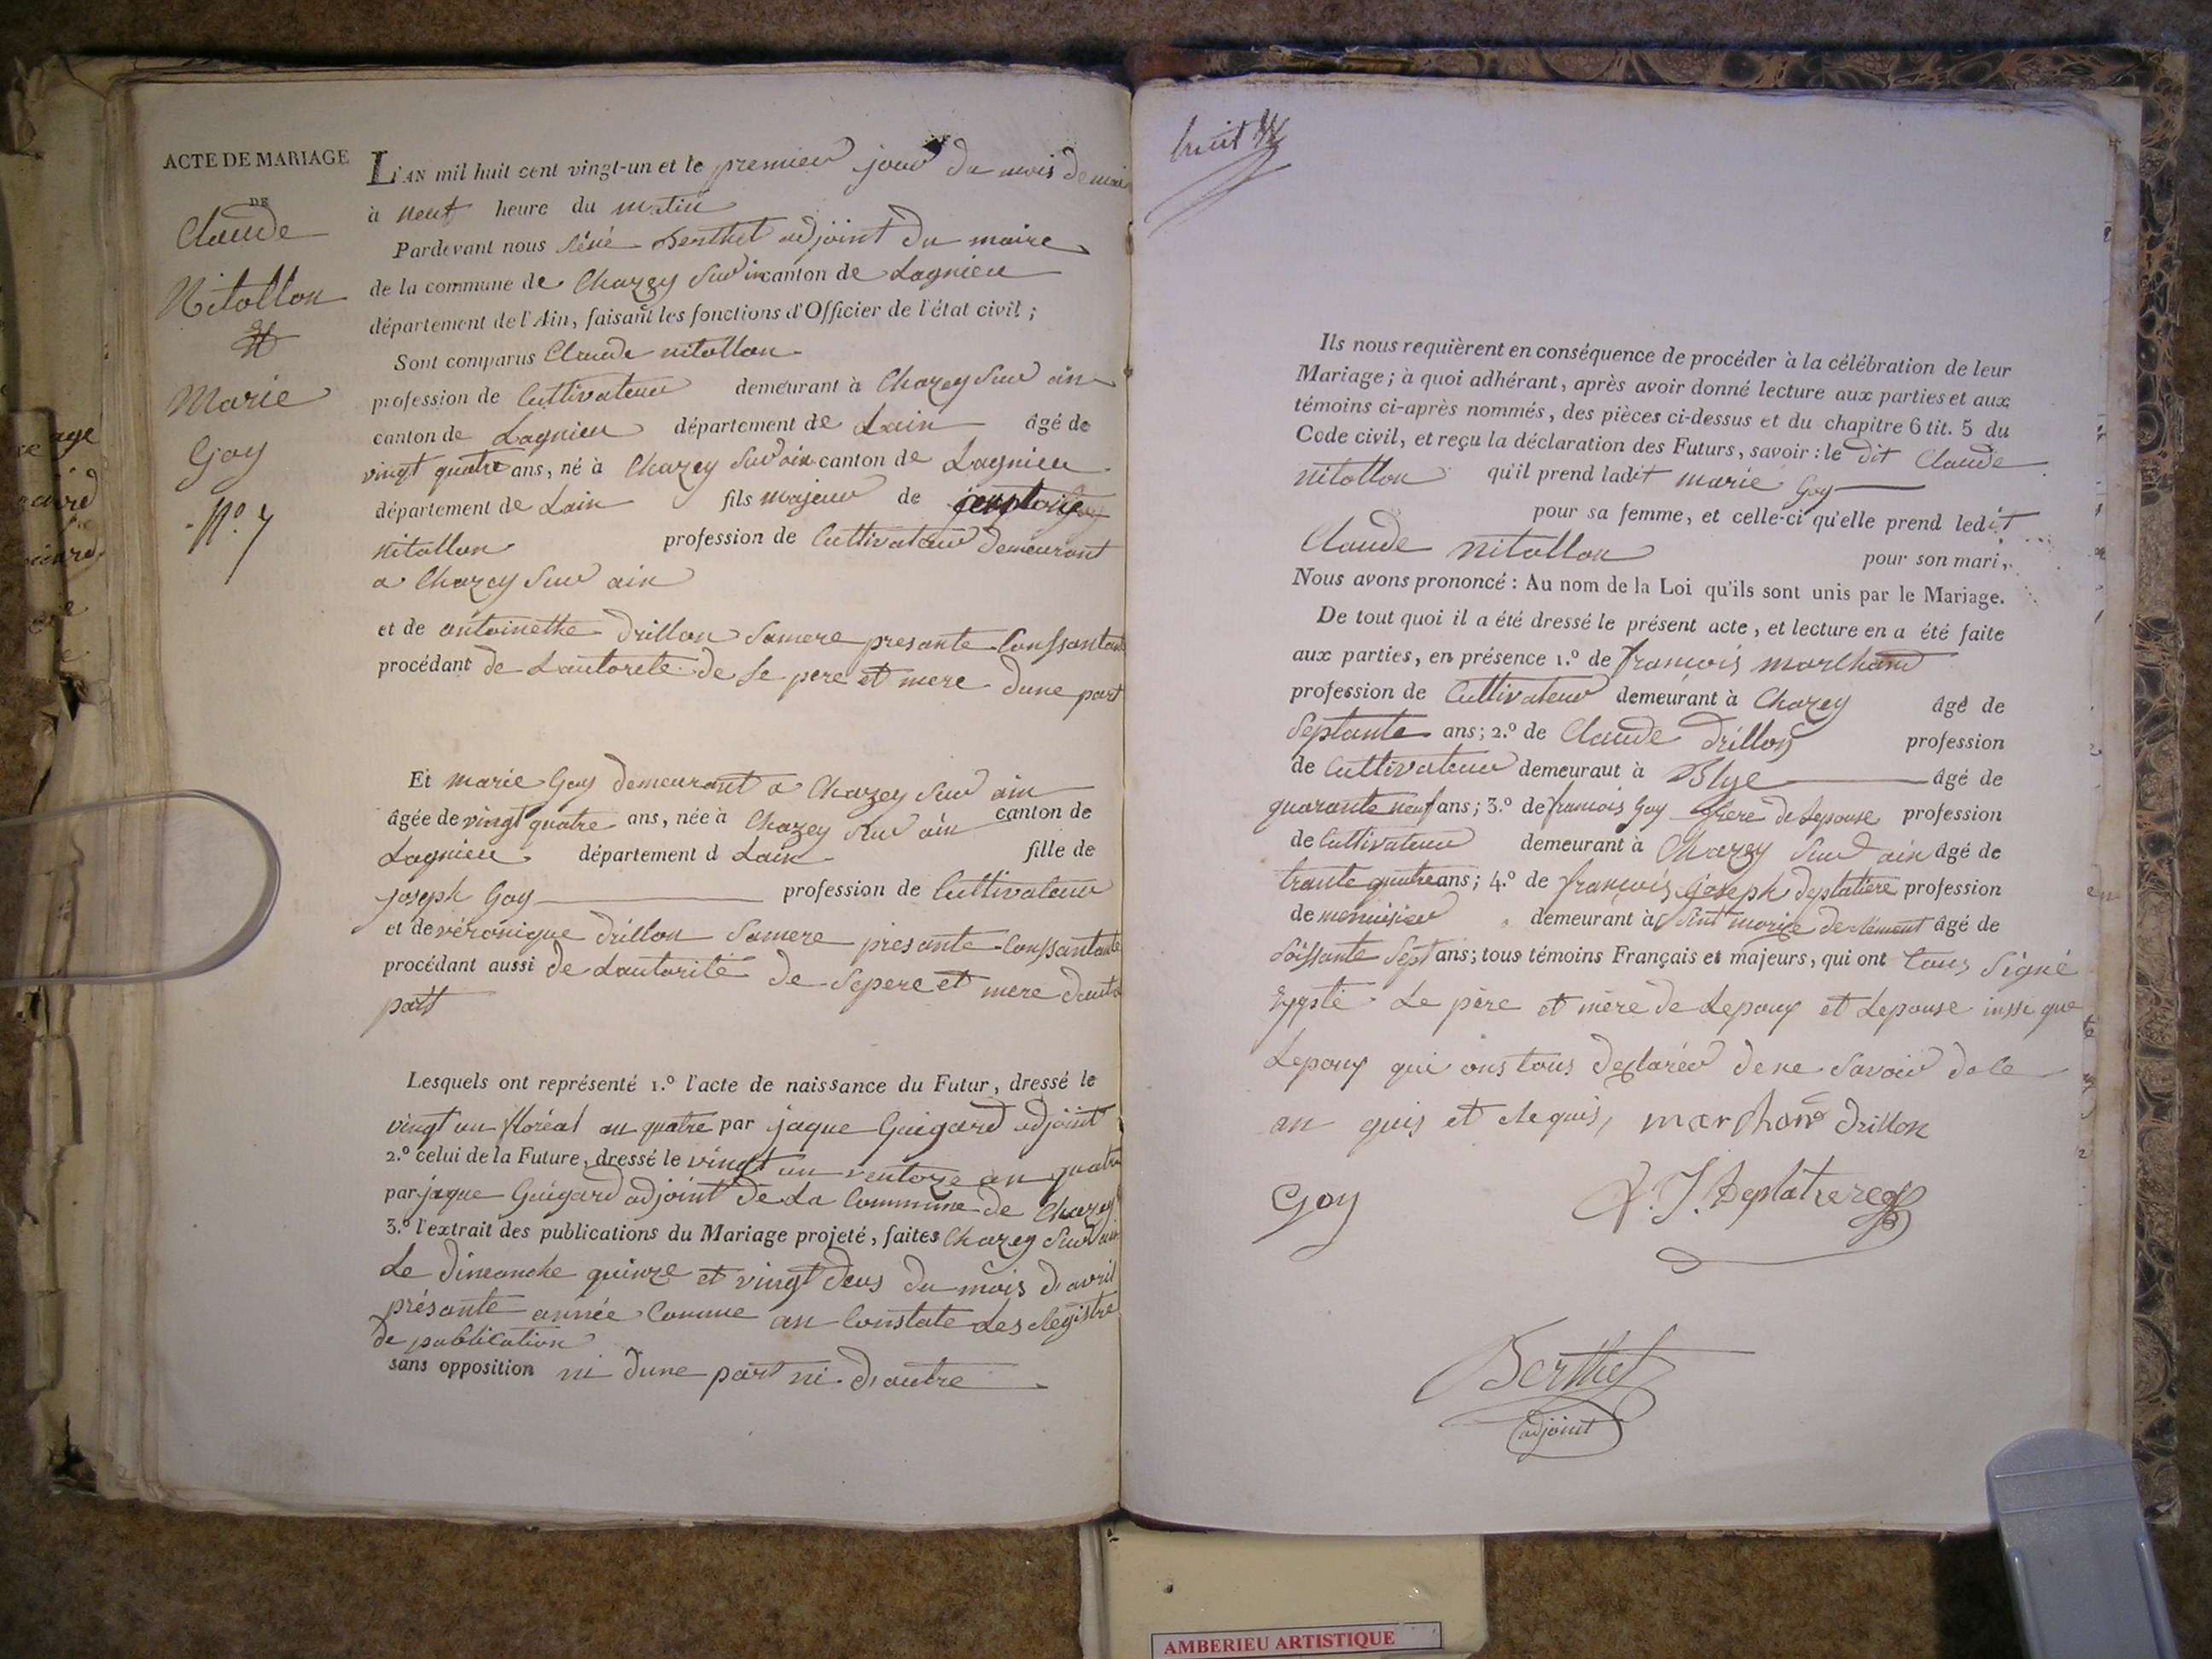 ACTE DE MARIAGE
DE
Claude
Nitollon
et
Marie
Goy
N.º 7
L'AN mil huit cent vingt-un et le premier jour du mois de mai
à neuf heure du matin
Pardevant nous Réné Berthet adjoint du maire
de la commune de Chazey Sur in canton de Lagnieu
département de l'Ain, faisant les fonctions d'Officier de l'état civil;
Sont comparus Claude nitollon
profession de Cultivateur demeurant à Chazey Sur ain
canton de Lagnieu département de Lain âgé de
vingt quatre ans, né à Chazey Sur ain canton de Lagnieu
département de Lain fils majeur de
nitollon profession de Cultivateur demeurant
a Chazey Sur ain
et de antoinethe drillon Samere presante Conssantante
procédant de Lautorete de Se pere et mere dune part
Et marie Goy demeurant a Chazey Sur ain
âgée de vingt quatre ans, née à Chazey Sur ain canton de
Lagnieu département d Lain fille de
joseph Goy profession de Cultivateur
et de véronique drillon Samere presante Conssantante
procédant aussi de Lautorité de Sepere et mere dautre
part
Lesquels ont représenté 1.º l'acte de naissance du Futur, dressé le
vingt un floréal an quatre par jaque Guigard adjoint
2.º celui de la Future, dressé le vingt un ventoze an quatre
par jaque Guigard adjoint de La Commune de Chazey
3.º l'extrait des publications du Mariage projeté, faites Chazey Sur ain
Le dimanche quinze et vingt deus du mois d'avril
présante année Comme an Constate Les Registre
de publication
sans opposition ni dune part ni d'autre
huit
Ils nous requièrent en conséquence de procéder à la célébration de leur
Mariage; à quoi adhérant, après avoir donné lecture aux parties et aux
témoins ci-après nommés, des pièces ci-dessus et du chapitre 6 tit. 5 du
Code civil, et reçu la déclaration des Futurs, savoir: le dit Claude
nitollon qu'il prend ladit marie Goy
pour sa femme, et celle-ci qu'elle prend ledit
Claude nitollon pour son mari,
Nous avons prononcé: Au nom de la Loi qu'ils sont unis par le Mariage.
De tout quoi il a été dressé le présent acte, et lecture en a été faite
aux parties, en présence 1.º de francois marchand
profession de Cultivateur demeurant à Chazey âgé de
Septante ans; 2.º de Claude drillon profession
de Cultivateur demeuraut à Blye âgé de
quarante neuf ans; 3.º de francois Goy frere de Lepouse profession
de Cultivateur demeurant à Chazey Sur ain âgé de
trante quatre ans; 4.º de francois joseph deplatiere profession
de menuisier demeurant à Sint morize de Rément âgé de
Soissante Sept ans; tous témoins Français et majeurs, qui ont tous Signé
Le père et mère de Lepoux et Lepouse inssi que
Lepoux qui ons tous déclaréer de ne Savoir de ce
an quis et Requis, marchand drillon
Goy F. J. Deplatiere
Berthet
adjoint
AMBERIEU ARTISTIQUE